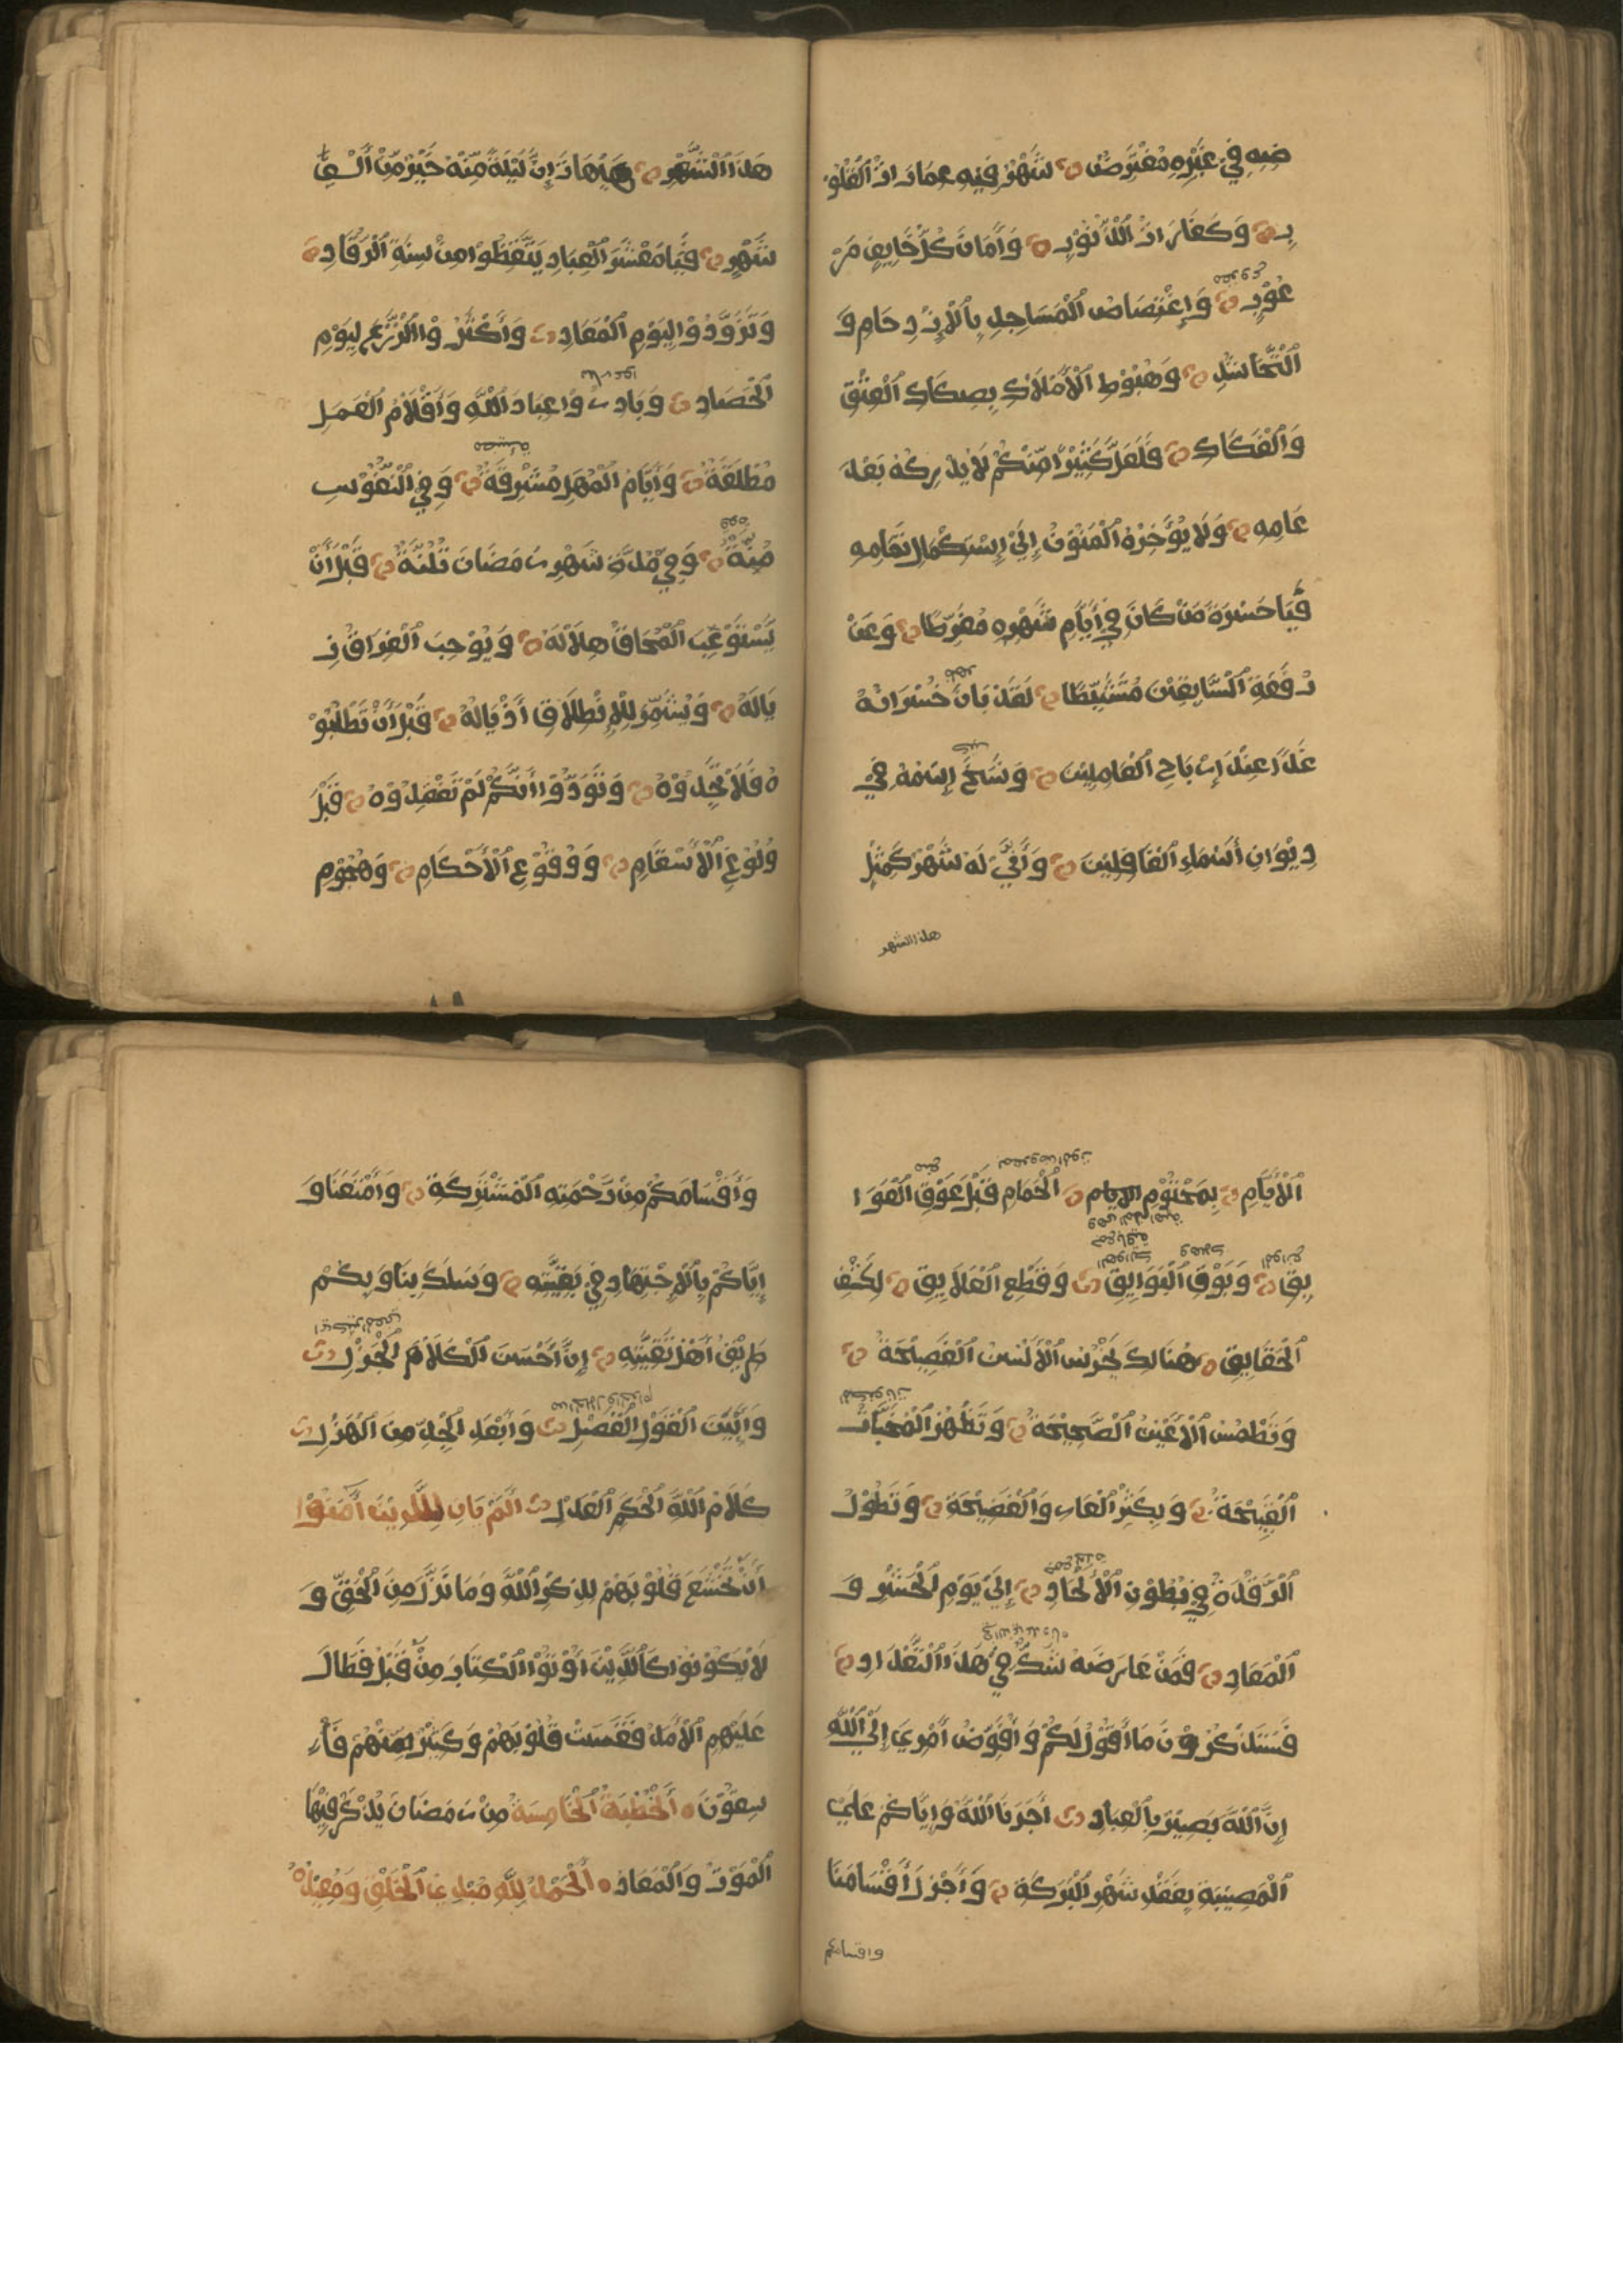 ضِهِ فِي غَيْرِهِ مُفْتَرَضٌ شَهْرٌ فِيهِ عِمَارَاتُ الْقُلُوْ
بِ وَكَفَّارَاتُ الذُّنُوْبِ وَأَمَانُ كُلِّ خَايِفٍ مَرْ
عُوْبٍ وَإِغْتِصَاصُ الْمَسَاجِدِ بِالْإِزْدِحَامِ وَ
التَّحَاشُدِ وَهُبُوْطِ الْأَمْلَاكِ بِصِكَاكِ الْعِتْقِ
وَالْفَكَاكِ فَلَعَلَّ كَثِيْرًا مِّنْكُمْ لَا يُدْرِكُهُ بَعْدَ
عَامِهِ وَلَا يُؤَخِّرُهُ الْمَنُوْنُ إِلَى إِسْتِكْمَالِ تَمَامِهِ
فَيَا حَسْرَةَ مَنْ كَانَ فِي أَيَّامِ شَهْرِهِ مُفَرِّطًا وَعَنْ
رُفْقَةِ السَّابِقِيْنَ مُتَثَبِّطًا لَقَدْ بَانَ خُسْرَانُهُ
غَدًا عِنْدَ إِرْبَاحِ الْعَامِلِيْنَ وَنُسِخَ إِسْمُهُ فِيْ
دِيْوَانِ أَسْمَاءِ الْغَافِلِيْنَ وَأَنَّى لَهُ شَهْرٌ كَمِثْلِ
هذا الشهر
هَذَا الشَّهْرِ هَيْهَاتَ إِنَّ لَيْلَةً مِّنْهُ خَيْرٌ مِّنْ أَلْفِ
شَهْرٍ فَيَا مَعْشَرَ الْعِبَادِ تَيَقَّظُوا مِنْ سِنَةِ الرُّقَادِ
وَتَزَوَّدُوْا لِيَوْمِ الْمَعَادِ وَأَكْثِرُوْا الزَّرْعَ لِيَوْمِ
الْحَصَادِ وَبَادِرُوْا عِبَادَ اللَّهِ وَأَقْلَامُ الْعَمَلِ
مُطْلَقَةٌ وَأَيَّامُ الْمَهَلِ مُشْرِقَةٌ وَفِي النُّفُوْسِ
مُنَّةٌ وَفِي مُدَّةِ شَهْرِ رَمَضَانَ ثُلُثَهُ قَبْلَ أَنْ
يَسْتَوْعِبَ الْمُحَاقُ هِلَالَهُ وَيُوْجِبَ الْفِرَاقُ زِ
يَالَهُ وَيُشَمِّرَ لِلْإِنْطِلَاقِ أَذْيَالَهُ قَبْلَ أَنْ تَطْلُبُوْ
هُ فَلَا تَجِدُوْهُ وَتَوَدُّوْا أَنَّكُمْ لَمْ تَفْقِدُوْهُ قَبْلَ
وُلُوْعِ الْأَسْقَامِ وَوُقُوْعِ الْأَحْكَامِ وَهُجُوْمِ
الْأَيَّامِ بِمَحْتُوْمِ الْحِمَامِ قَبْلَ عَوْقِ الْعَوَا
يِقِ وَبَوْقِ الْبَوَايِقِ وَقَطْعِ الْعَلَايِقِ لِكَشْفِ
الْحَقَايِقِ هُنَالِكَ تَخْرَسُ الْأَلْسُنُ الْفَصِيْحَةُ
وَتُطْمَسُ الْأَعْيُنُ الصَّحِيْحَةُ وَتَظْهَرُ الْمُخَبَّآتُ
الْقَبِيْحَةُ وَيَكْثُرُ الْعَارُ وَالْفَضِيْحَةُ وَتَطُوْلُ
الرَّقْدَةُ فِي بُطُوْنِ الْأَلْحَادِ إِلَى يَوْمِ الْحَشْرِ وَ
الْمَعَادِ فَمَنْ عَارَضَهُ شَكٌّ فِي هَذَا التَّعْدَادِ
فَسَتَذْكُرُوْنَ مَا أَقُوْلُ لَكُمْ وَأُفَوِّضُ أَمْرِي إِلَى اللَّهِ
إِنَّ اللَّهَ بَصِيْرٌ بِالْعِبَادِ أَجَرَنَا اللَّهُ وَإِيَّاكُمْ عَلَى
الْمُصِيْبَةِ بِفَقْدِ شَهْرِ الْبَرَكَةِ وَأَجْزَلَ أَقْسَامَنَا
واقسامكم
وَأَقْسَامَكُمْ مِنْ رَّحْمَتِهِ الْمُشْتَرَكَةِ وَأَمْتَعَنَا وَ
إِيَّاكُمْ بِالْإِجْتِهَادِ فِي بَقِيَّتِهِ وَسَلَكَ بِنَا وَبِكُمْ
طَرِيْقَ أَهْلِ تَقِيَّتِهِ إِنَّ أَحْسَنَ الْكَلَامِ الْجَزْلِ
وَأَبْيَنَ الْقَوْلِ الْفَصْلِ وَأَبْعَدَ الْجِدِّ مِنَ الْهَزْلِ
كَلَامُ اللَّهِ الْحَكَمِ الْعَدْلِ أَلَمْ يَانِ لِلَّذِيْنَ آمَنُوْا
أَنْ تَخْشَعَ قُلُوْبُهُمْ لِذِكْرِ اللَّهِ وَمَا نَزَلَ مِنَ الْحَقِّ وَ
لَا يَكُوْنُوْا كَالَّذِيْنَ أُوْتُوْا الْكِتَابَ مِنْ قَبْلُ فَطَالَ
عَلَيْهِمُ الْأَمَدُ فَقَسَتْ قُلُوْبُهُمْ وَكَثِيْرٌ مِّنْهُمْ فَا
سِقُوْنَ أَلْخُطْبَةُ الْخَامِسَةُ مِنْ رَمَضَانَ يُذْكَرُ فِيْهَا
الْمَوْتُ وَالْمَعَادُ أَلْحَمْدُ لِلَّهِ مُبْدِعِ الْخَلْقِ وَمُعِيْدُهُ